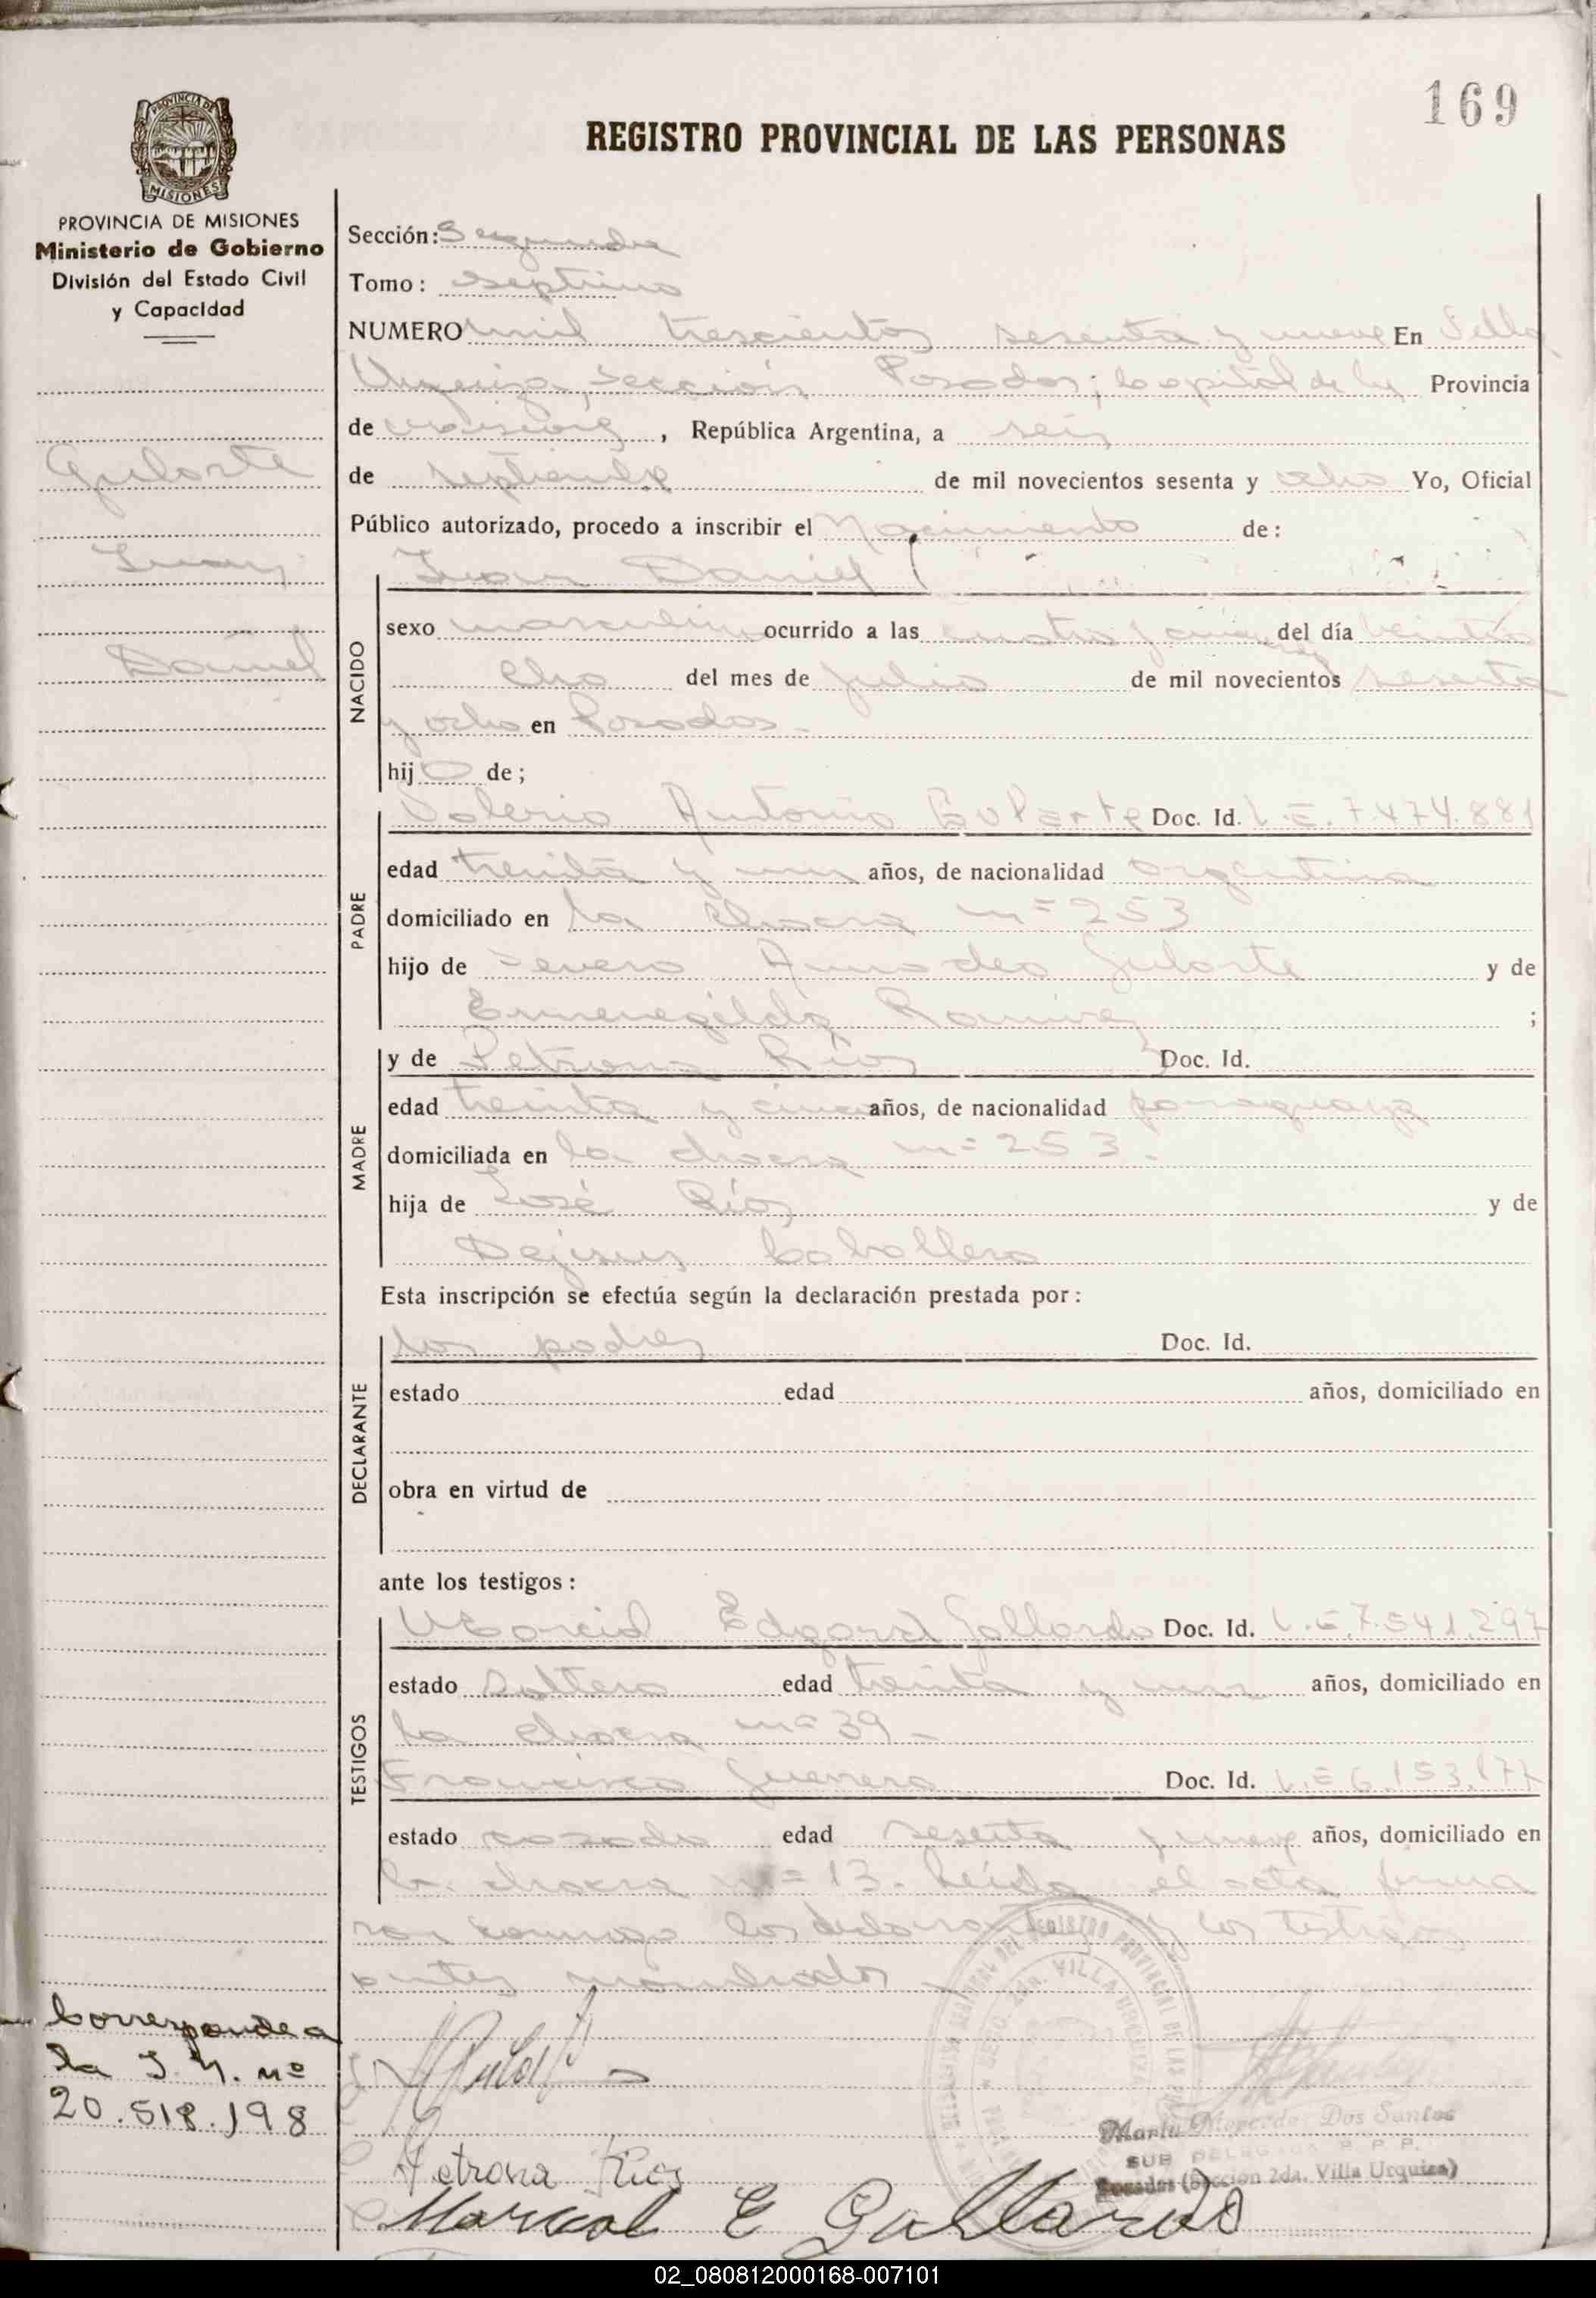 169
REGISTRO PROVINCIAL DE LAS PERSONAS
PROVINCIA DE MISIONES
PROVINCIA DE MISIONES
Ministerio de Gobierno
División del Estado Civil
y Capacidad
Gularte
Juan
Daniel
Sección: Segunda
Tomo: septimo
NUMERO mil trescientos sesenta y nueve En Villa
Urquiza, sección Posadas, Capital de la Provincia
de Misiones, República Argentina, a seis
de septiembre de mil novecientos sesenta y ocho Yo, Oficial
Público autorizado, procedo a inscribir el Nacimiento de:
Juan Daniel
NACIDO
sexo masculino ocurrido a las cuatro y del día veintio
cho del mes de Julio de mil novecientos sesenta
y ocho en Posadas.-
hijo de;
PADRE
Valerio Antonio Gularte Doc. Id. L.E. 7.474.881
edad treinta y un años, de nacionalidad argentina
domiciliado en la chacra nº 253
hijo de Severo Amadeo Gularte y de
Ermenegilda Ramirez ;
MADRE
y de Petrona Ríos Doc. Id.
edad treinta y cinco años, de nacionalidad paraguaya
domiciliada en la chacra nº 253.
hija de José Ríos y de
Dejesus Caballero
Esta inscripción se efectúa según la declaración prestada por:
DECLARANTE
los padres Doc. Id.
estado edad años, domiciliado en
obra en virtud de
ante los testigos:
TESTIGOS
Marcial Edgard Gallardo Doc. Id. L.E. 7.541.297
estado soltero edad treinta y un años, domiciliado en
la chacra nº 39-
Francisco Guerrero Doc. Id. L.E 6.153.177
estado casado edad sesenta y nueve años, domiciliado en
la chacra nº 13. Leída el acta firma
ron conmigo los declarantes y los testigos
antes nombrados
Corresponde a
la I. N. nº
20.518.198
Petrona Rios
Marcial E Gallardo
Marta Mercedes Dos Santos
SUB DELEGADA R. P. P.
Posadas (Sección 2da. Villa Urquiza)
02_080812000168-007101